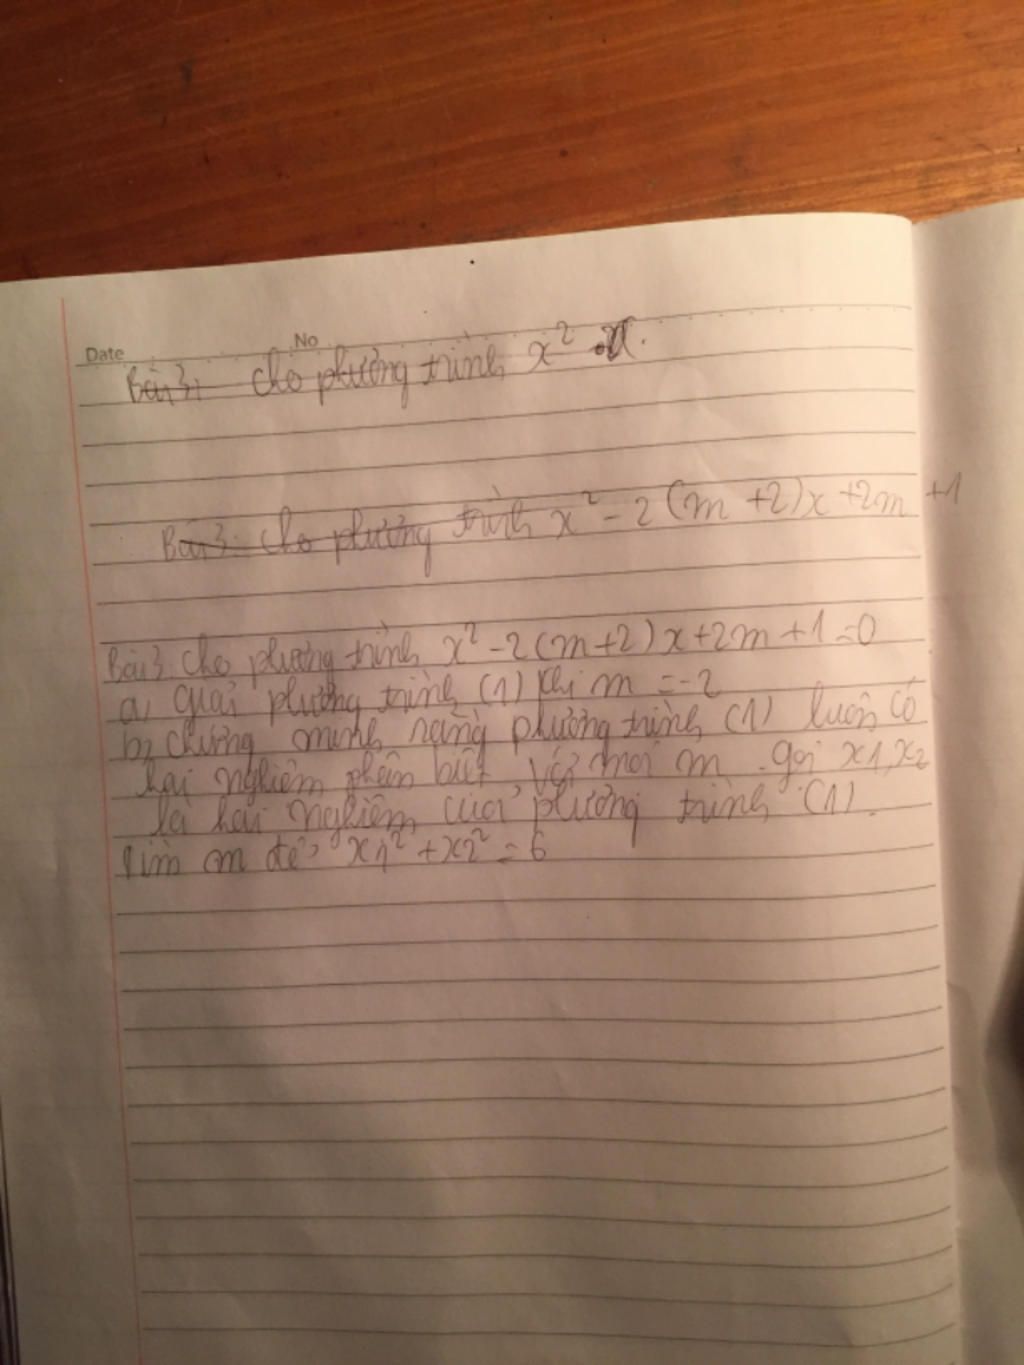 Date No
Bài 3: Cho phương trình x² - x.
Bài 3: Cho phương trình x² - 2(m+2)x + 2m + 1
Bài 3: Cho phương trình x² - 2(m+2)x + 2m + 1 = 0
a, Giải phương trình (1) khi m = -2
b, chứng minh rằng phương trình (1) luôn có
hai nghiệm phân biệt với mọi m. gọi x1, x2
là hai nghiệm của phương trình (1).
tìm m để x1² + x2² = 6